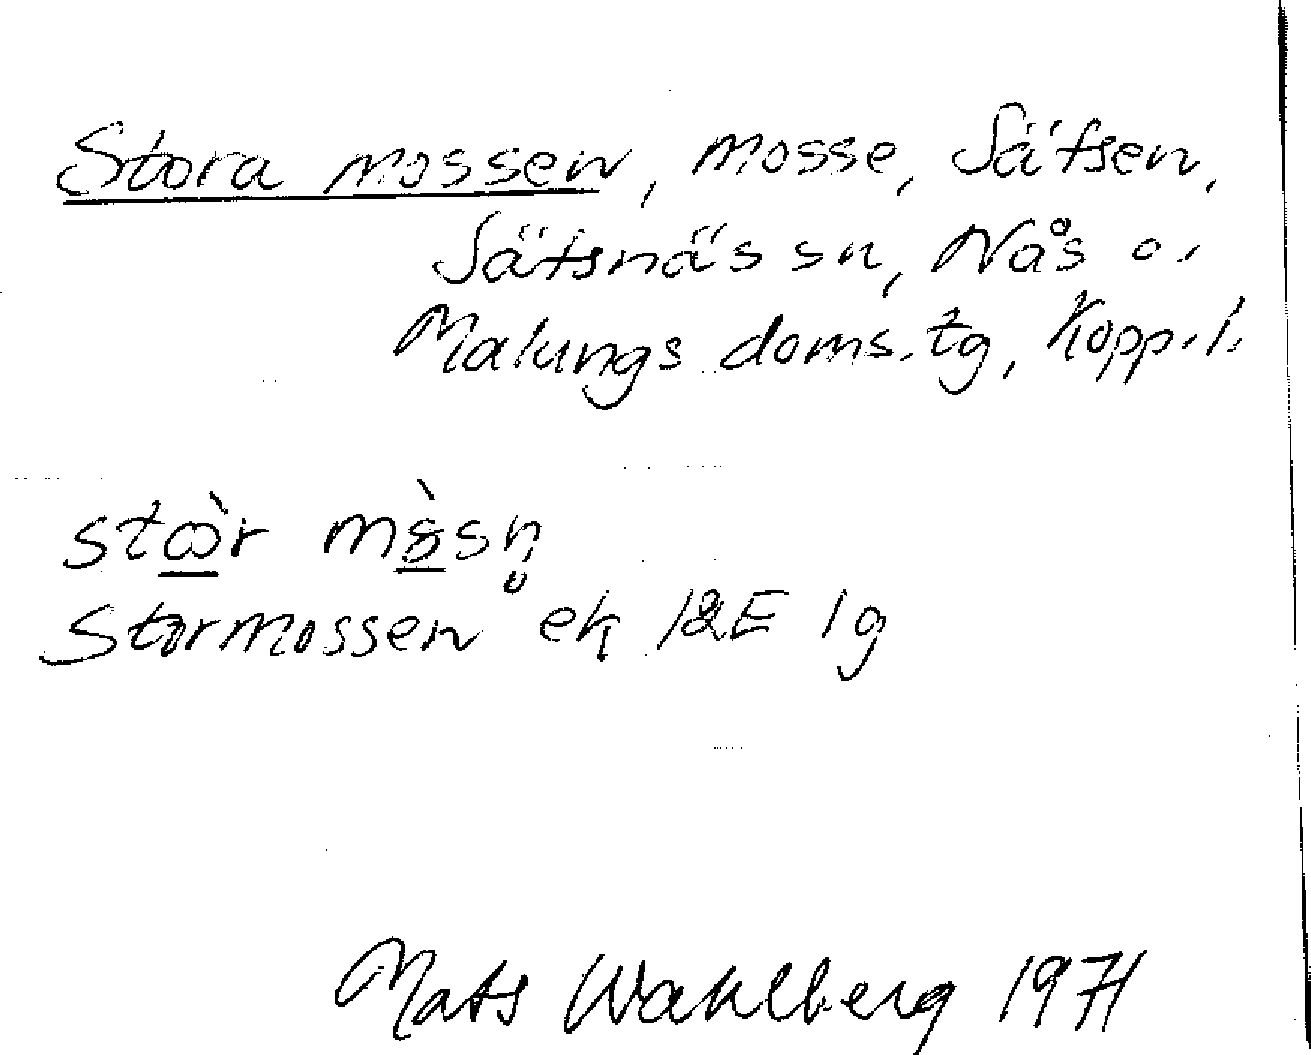 Stora mossen, mosse, Säfsen,
Säfsnäs sn, Nås o.
Malungs doms. tg, Kopp. l.
Stormossen ek 12E 1g
Mats Wahlberg 1971